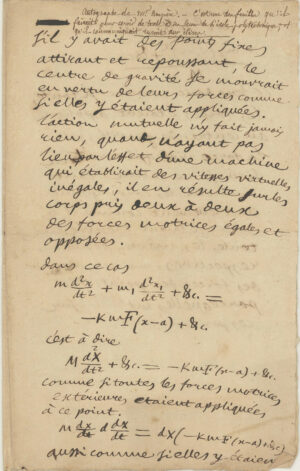 Autographe de Mr Ampère. — C'est une des feuilles qu'il
faisait pour servir de texte à ses leçons de l'école polytechnique, et
qu'il communiquait ensuite aux élèves
S'il y avait des points fixes
attirant et repoussant, le
centre de gravité se mouvrait
en vertu de leurs forces comme
si elles y étaient appliquées.
L'action mutuelle n'y fait jamais
rien, quand, n'ayant pas
lieu par l'effet d'une machine
qui établirait des vitesses virtuelles
inégales, il en résulte sur les
corps pris deux à deux
des forces motrices égales et
opposées.
dans ce cas
m d²x/dt² + m₁ d²x₁/dt² + &c. =
−KmF(x−a) + &c.
c'est à dire
M d²X/dt² + &c. = −KmF(x−a) + &c.
comme si toutes les forces motrices
extérieures étaient appliquées
à ce point.
m dx/dt d dx/dt = dx(−KmF(x−a) + &c)
aussi comme si elles y étaient